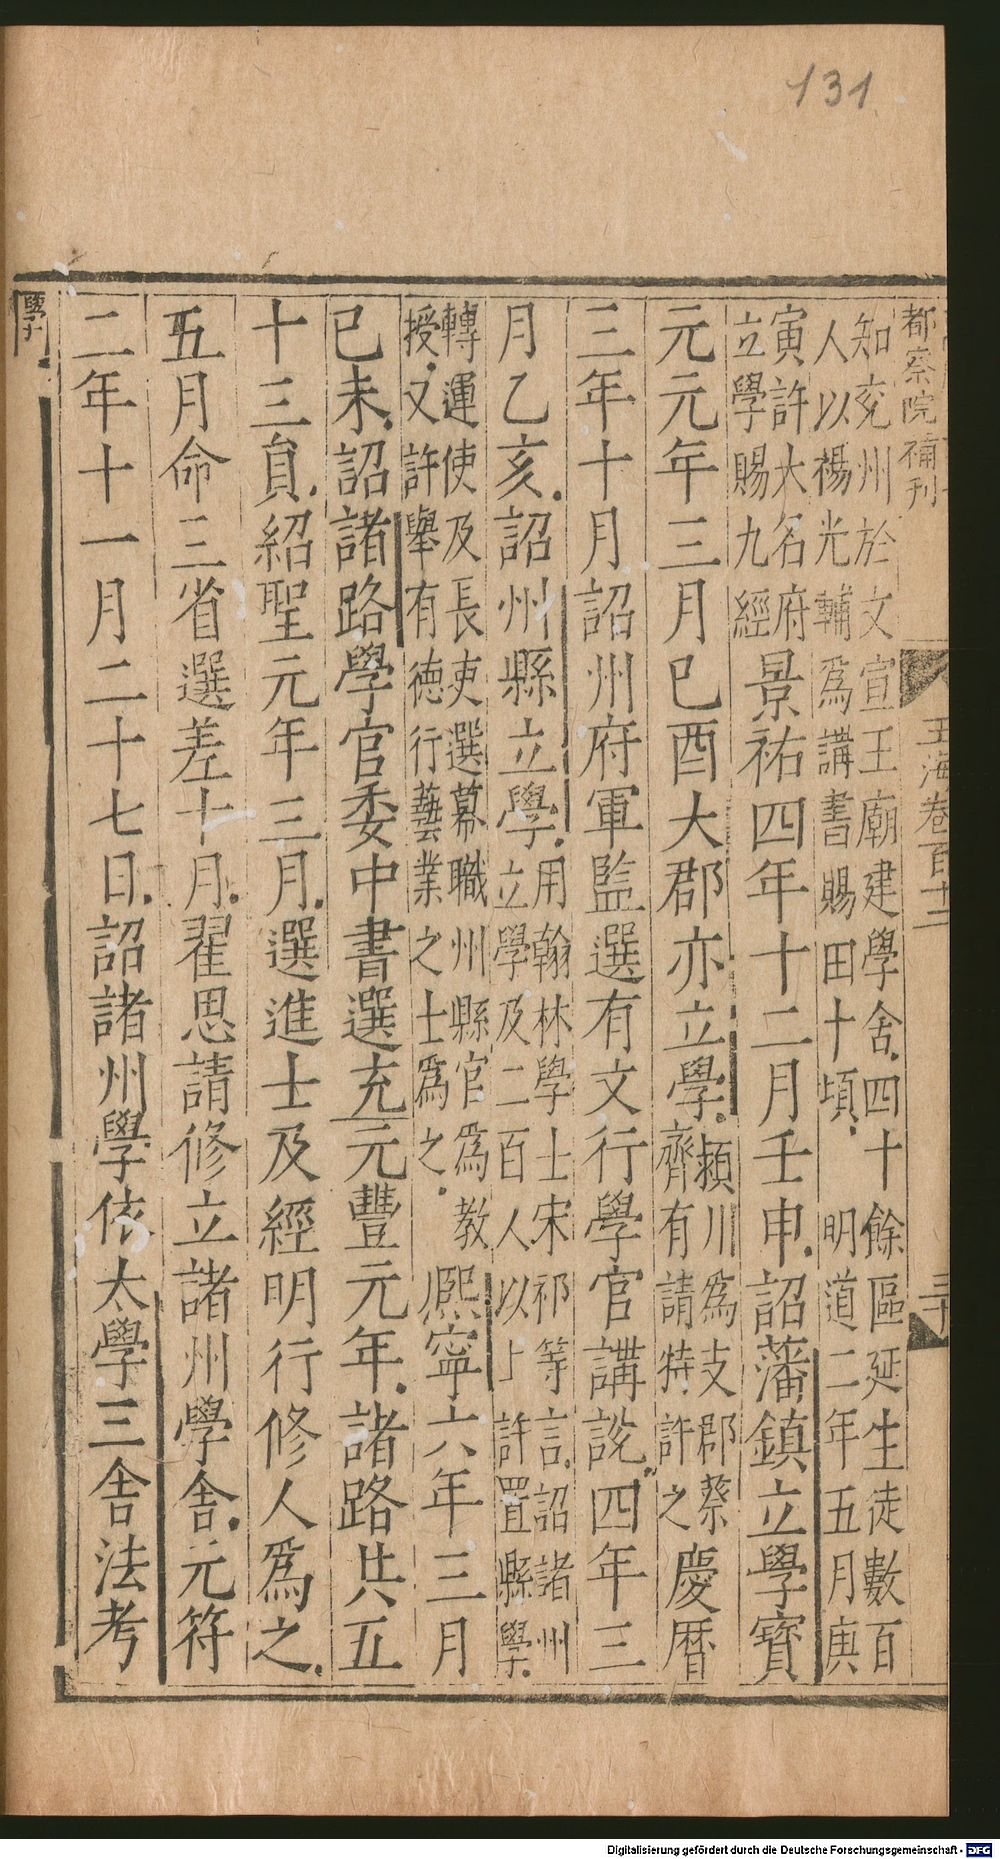 131
都察院補刊
玉海卷百十二
三十
知兖州於文宣王廟建學舍四十餘區延生徒數百
人以楊光輔爲講書賜田十頃明道二年五月庚
寅許大名府
立學賜九經
景祐四年十二月壬申詔藩鎮立學寶
元元年三月巳酉大郡亦立學
潁川爲支郡蔡
齊有請特許之
慶曆
三年十月詔州府軍監選有文行學官講説四年三
月乙亥詔州縣立學
用翰林學士宋祁等言詔諸州
立學及二百人以上許置縣學
轉運使及長吏選幕職州縣官爲教
授又許舉有德行藝業之士爲之
熈寧六年三月
巳未詔諸路學官委中書選充元豐元年諸路共五
十三員紹聖元年三月選進士及經明行修人爲之
五月命三省選差十月翟思請修立諸州學舍元符
二年十一月二十七日詔諸州學依太學三舍法考
學十
Digitalisierung gefördert durch die Deutsche Forschungsgemeinschaft - DFG